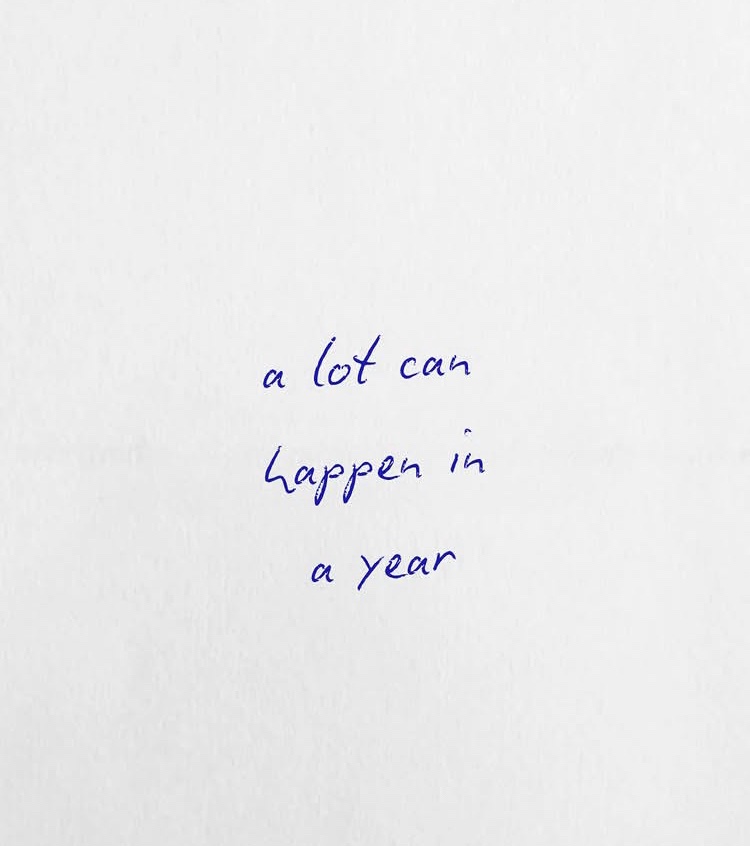 a lot can
happen in
a year